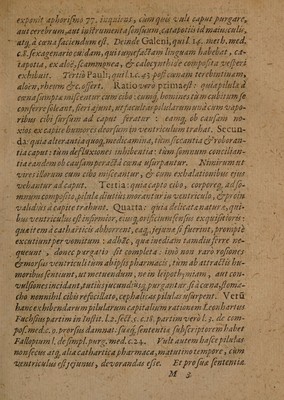 exponit aphorismo 77. inquiens, cum quis vult caput purgare,
aut cerebrum, aut instrumenta sensuum, catapotiis id maiusculis,
atq; à cœna faciendum est. Deinde Galeni, qui 14. meth. med.
c.8. sexagenario cuidam, qui tumefactam linguam habebat, ca-
tapotia, ex aloë, scammonea, & colocynthide composita vesperi
exhibuit. Tertiò Pauli, qui l.c.43 post cœnam terebinthinam,
aloen, rheum &c. offert. Ratio verò prima est: quia pilula à
cœna sumpta miscentur cum cibo: cumq; homines tum cœnitum se
conferre soleant, fieri aiunt, ut facultas pilularum unà cum vapo-
ribus cibi sursum ad caput feratur: eamq; ob causam no-
xios ex capite humores deorsum in ventriculum trahat. Secun-
da: quia alterantia quoq; medicamina, tum siccantia & roboran-
tia caput: tum defluxiones inhibentia: tum somnum concilian-
tia eandem ob causam peractâ cœna usurpantur. Nimirum ut
vires illorum cum cibo misceantur, & cum exhalationibus ejus
vehantur ad caput. Tertia: quia capto cibo, corporeq; ad so-
mnum composito, pilula diutius morantur in ventriculo, & proin
validius à capite trahunt. Quarta: quia delicatæ naturæ, qui-
bus ventriculus est infirmior, ejusq; orificium sensus exquisitioris:
quæ item à catharticis abhorrent, eaq; jejunæ si fuerint, promptè
excutiunt per vomitum: adhæc, quæ inediam tamdiu ferre ne-
queunt, donec purgatis sit completa: imò non rarò rosiones
& morsus ventriculi tum ab ipsis pharmacis, tum ab attractis hu-
moribus sentiunt, ut metuendum, ne in leipothymiam, aut con-
vulsiones incidant, tutius jucundiusq; purgantur, si à cœna, stoma-
cho nonnihil cibis refocillato, cephalicas pilulas usurpent. Verū
hanc exhibendarum pilularum capitalium rationem Leonhartus
Fuchsius partim in Instit. l.2. sect. c.18. partim verò l.3. de com-
pos. med. c.0. prorsus damnat. suæq; sententiæ subscriptorem habet
Fallopium l. de simpl. purg. med. c.24. Vult autem hasce pilulas
non secus atq; alia cathartica pharmaca, matutino tempore, cum
ventriculus est jejunus, devorandas esse. Et pro sua sententia
M 2